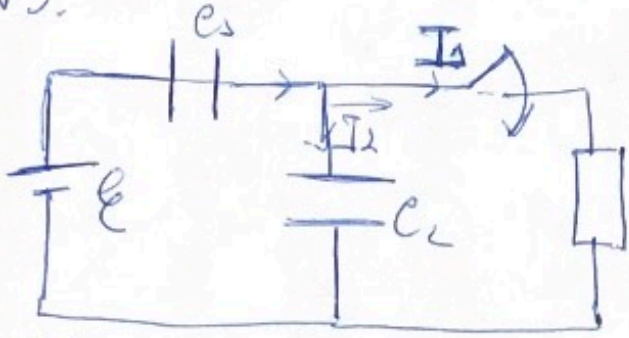 N3.
C₁ I₁
I₂
ℰ C₂